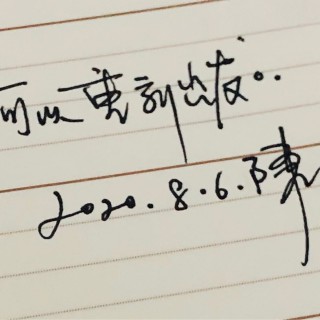 可以重新出发。.
2020.8.6.陳